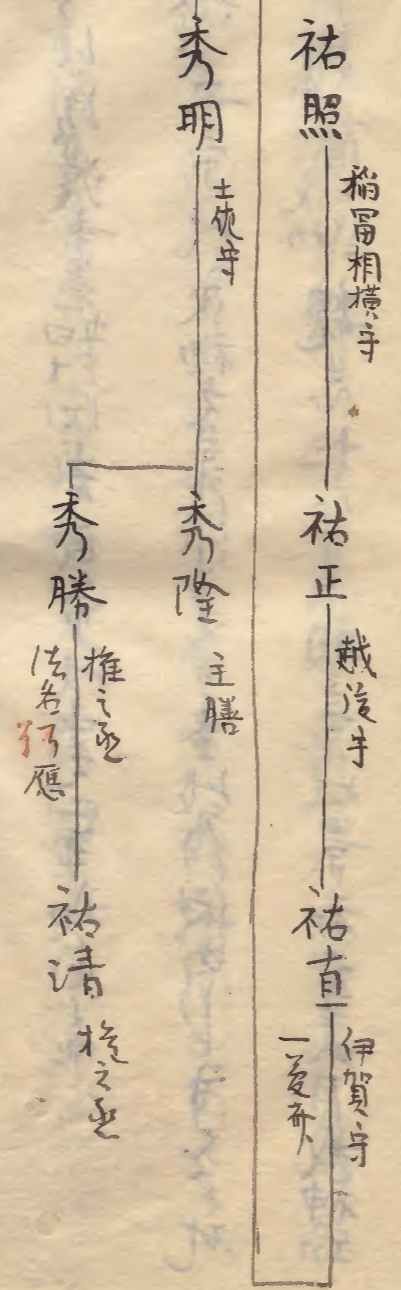 祐照
稲冨相模守
祐正
越後守
祐直
伊賀守
一夢斎
秀明
土佐守
秀隆
主膳
秀勝
権之丞
法名 應
祐清
権之丞